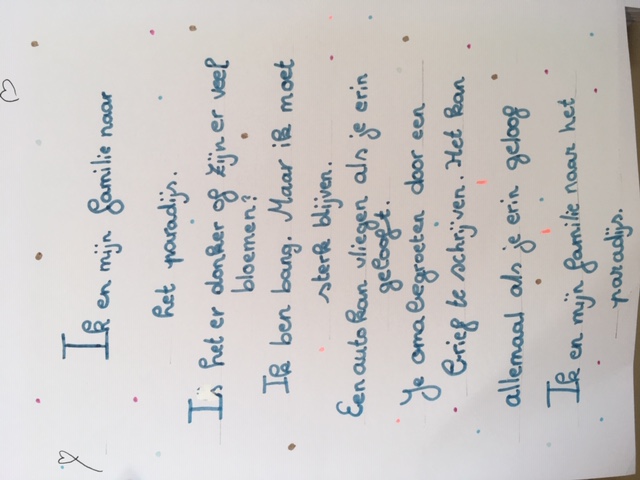 Ik en mijn familie naar
het paradijs.
Is het er donker of zijn er veel
bloemen?
Ik ben bang. Maar ik moet
sterk blijven.
Een auto kan vliegen als je erin
gelooft.
Je oma begroeten door een
brief te schrijven. Het kan
allemaal als je erin geloof
Ik en mijn familie naar het
paradijs.